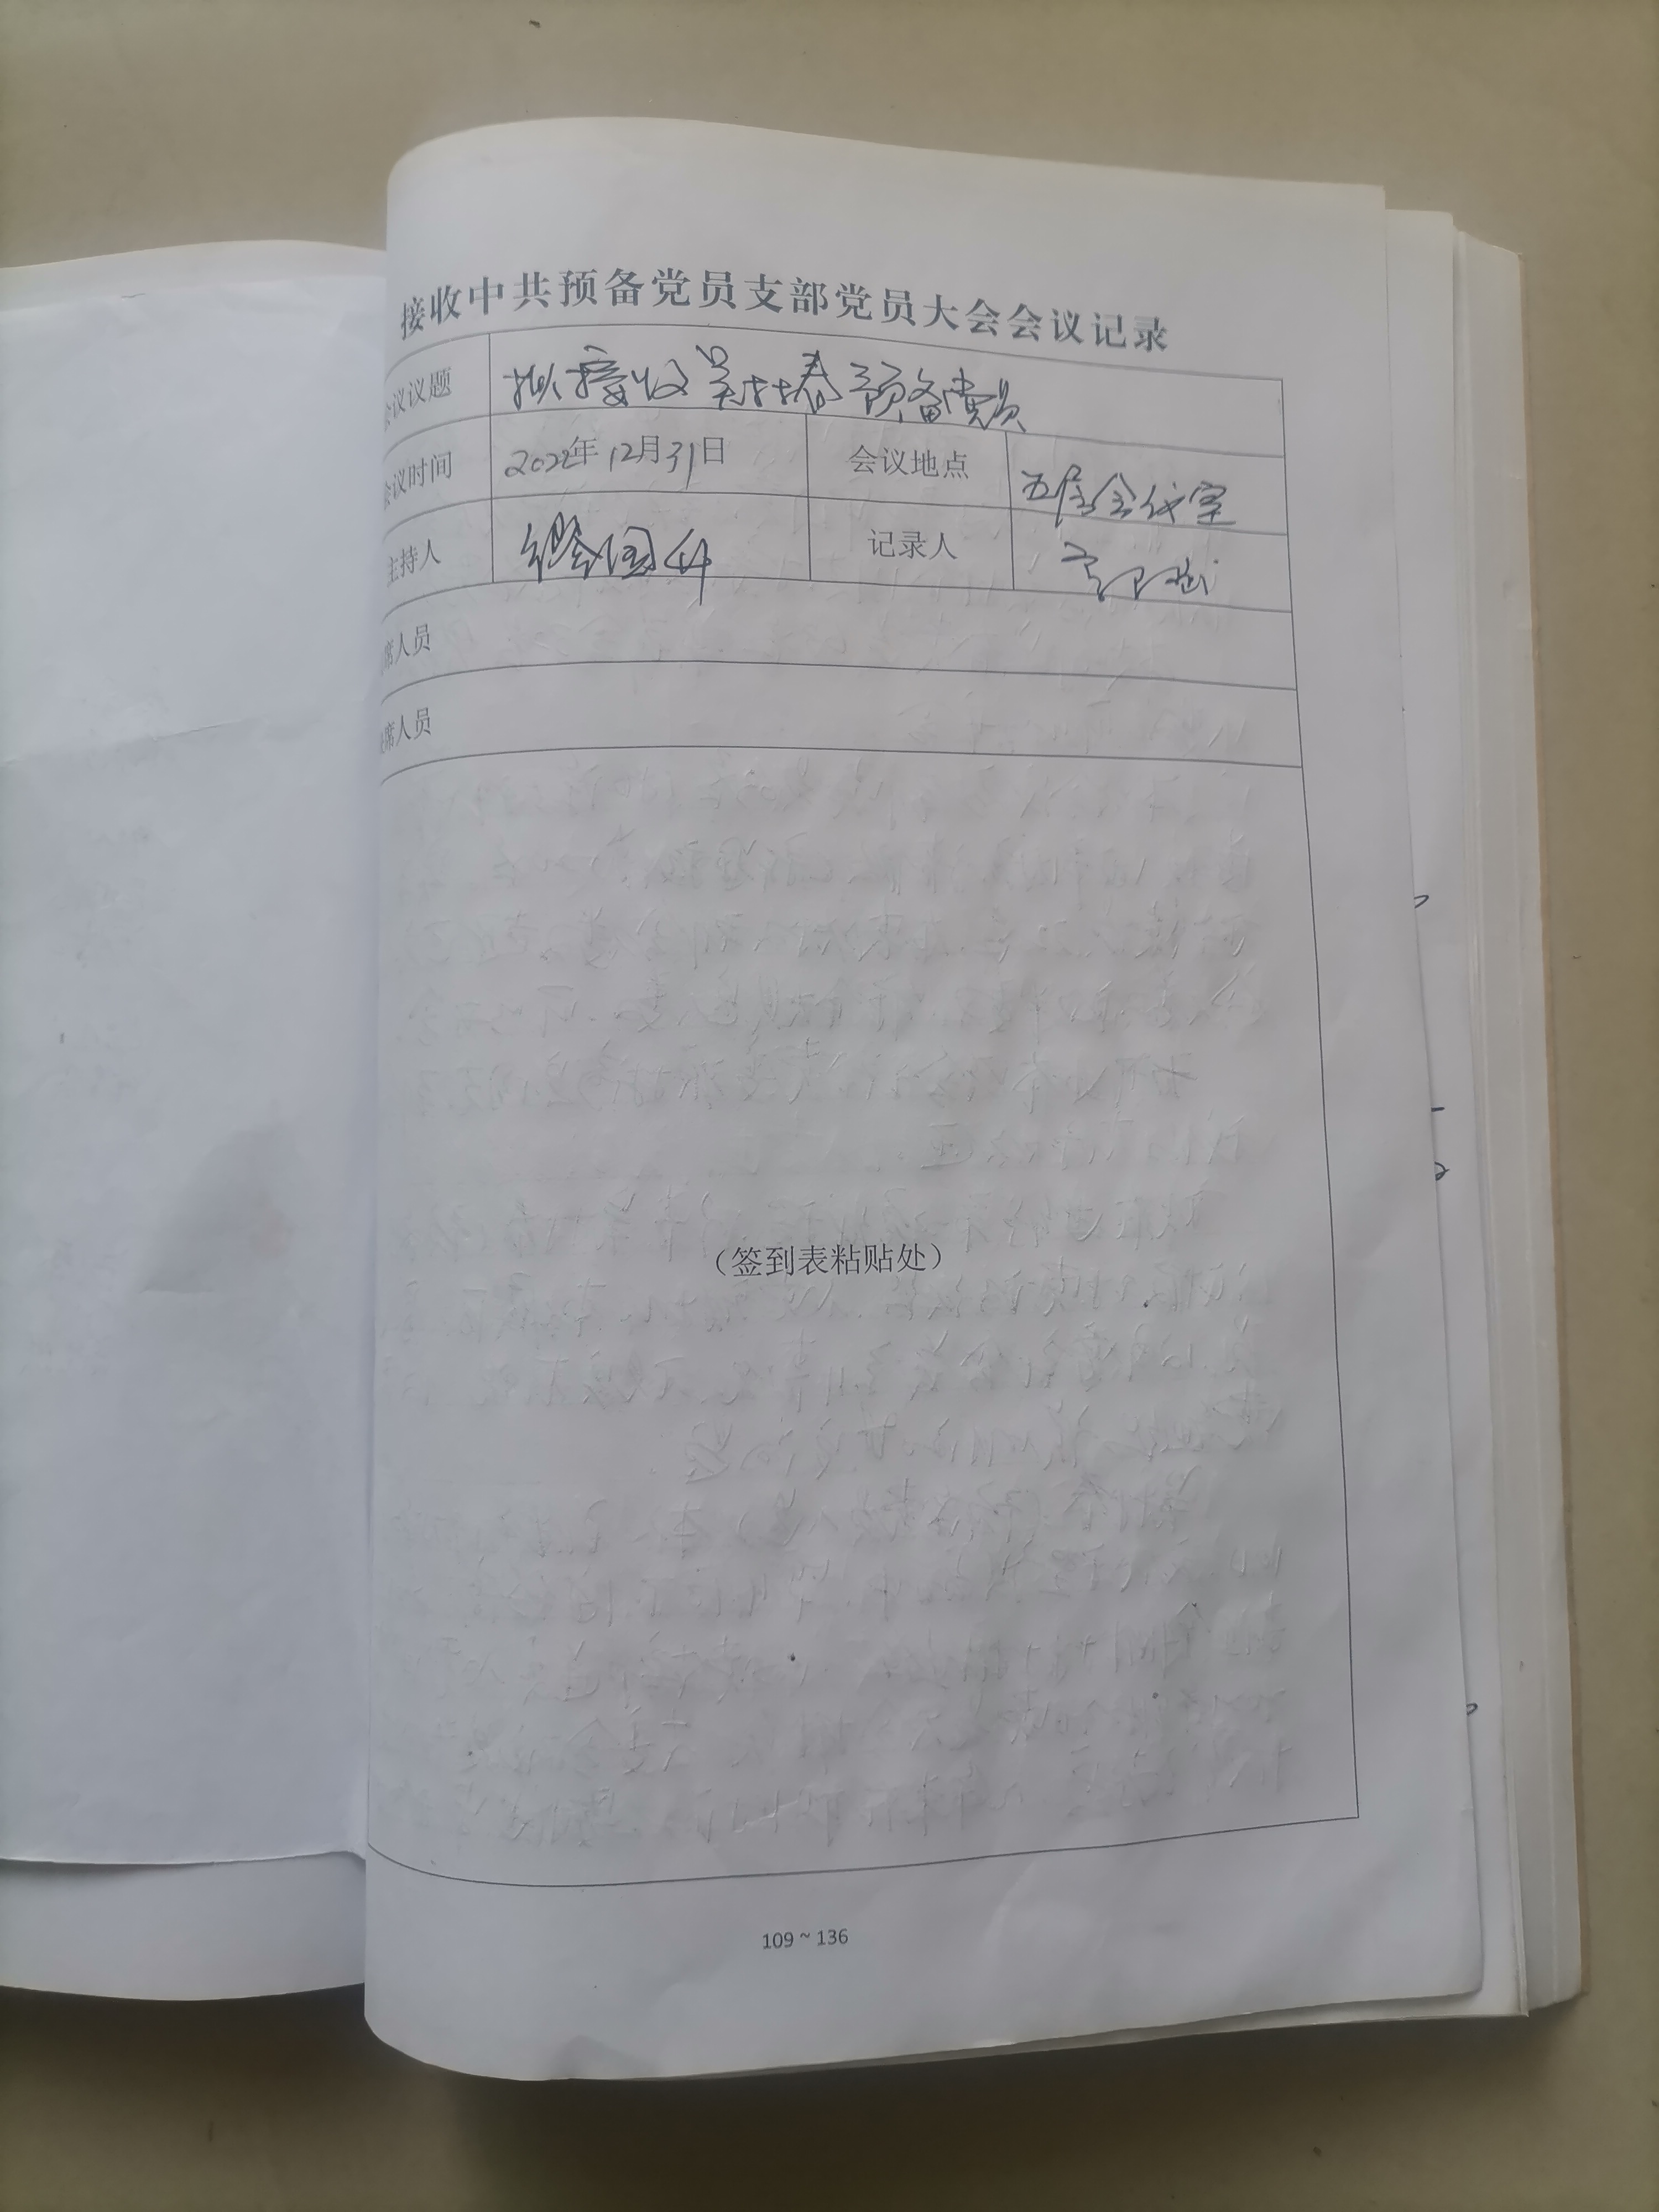 接收中共预备党员支部党员大会会议记录
会议议题 拟接收吴桂春预备党员
会议时间 2022年12月31日 会议地点 五层会议室
主持人 国 记录人
席人员
席人员
（签到表粘贴处）
109 ~ 136